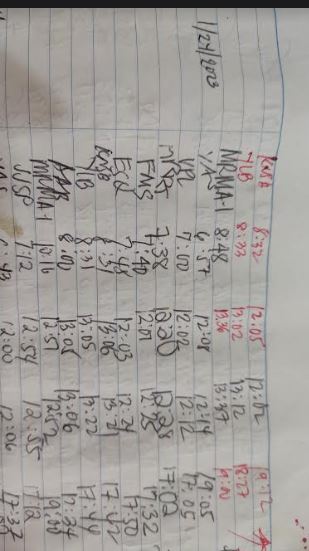 1/24/2023
KMB 8:32 12:05 12:42
JLB 8:33 13:02 13:12 18:27
MRMA-1 8:48 13:36 13:37 19:00
VAS 6:57 12:05 12:14 19:05
VPL 7:00 12:02 12:12 17:05
7:38 12:20 12:28 17:02
FMS 7:40 12:01 12:25 17:32
ECL 7:49 12:03 12:24 17:50
KMB 8:31 13:06 13:21 17:42
JLB 8:31 12:05 12:22 17:44
8:00 13:05 13:06 17:34
MRMA-1 10:10 12:51 12:52 19:00
JSP 7:12 12:54 12:55 17:12
12:00 12:06 17:37